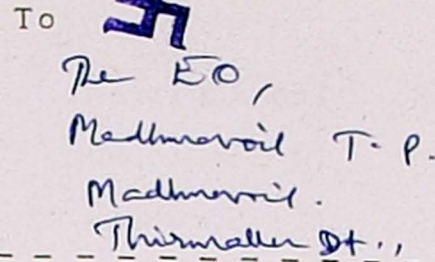 To
The EO,
Madhuravoil T. P.
Madhuravoil.
Thiruvallur Dt.,